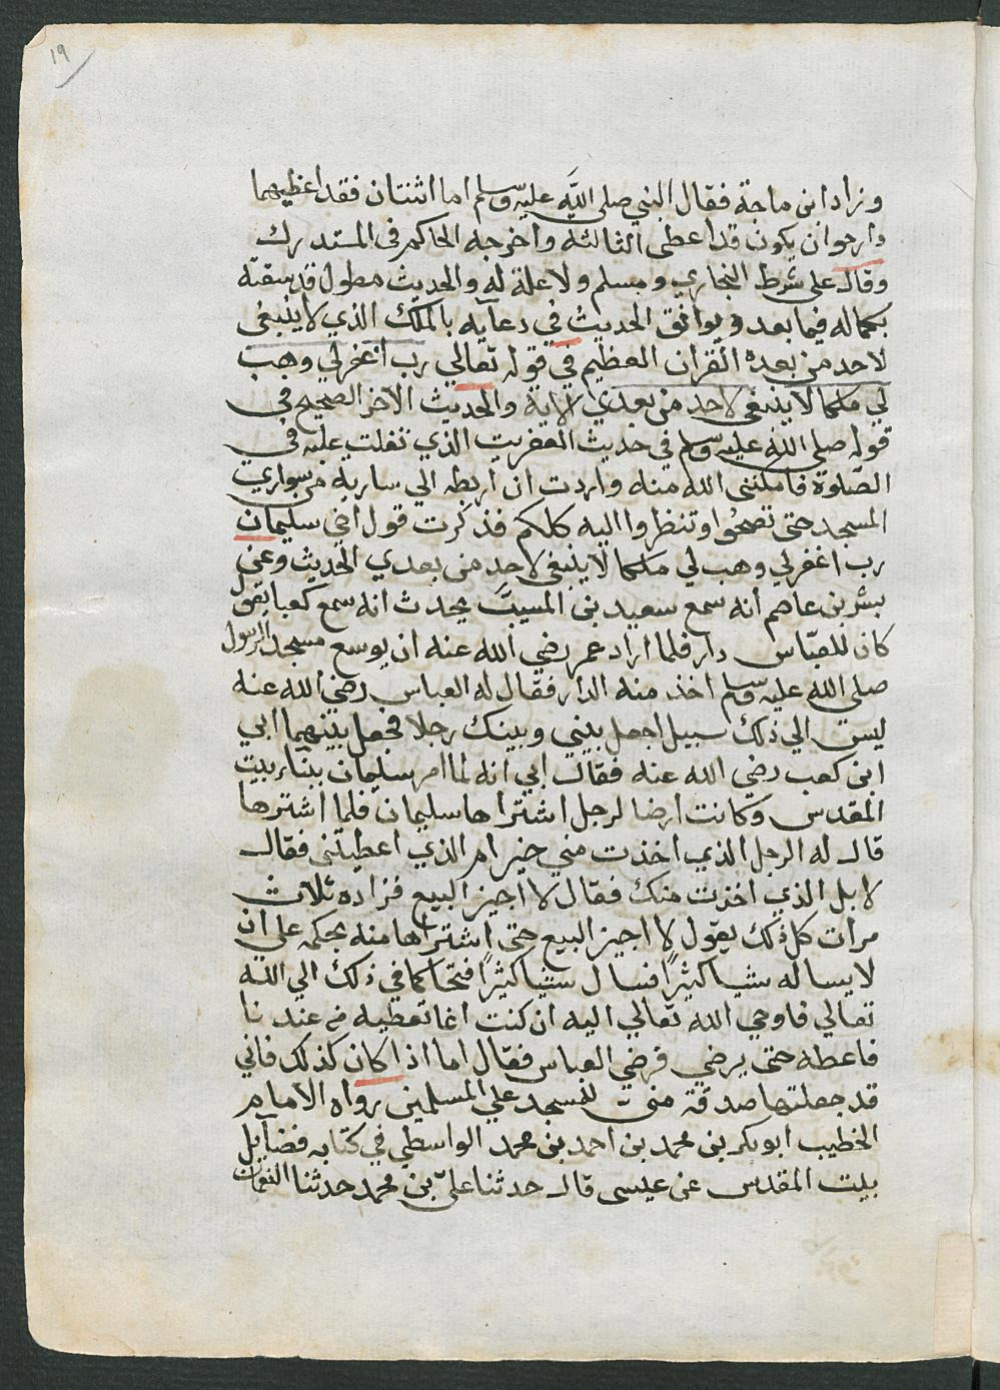 ١٩
وزاد ابن ماجة فقال النبي صلى الله عليه وسلم اما اثنتان فقد اعطيهما
وارجوان يكون قد اعطي الثالثة واخرجه الحاكم في المستدرك
وقال على شرط البخاري ومسلم ولا علة له والحديث مطول قد سقته
بكماله فيما بعد ويوافق الحديث في دعايه بالملك الذي لا ينبغي
لاحد من بعده القران العظيم في قوله تعالي رب اغفر لي وهب
لي ملكا لا ينبغي لاحد من بعدي الاية والحديث الآخر الصحيح في
قوله صلى الله عليه وسلم في حديث العفريت الذي تفلت عليه في
الصلوة فامكنني الله منه واردت ان اربطه الي سارية من سواري
المسجد حتى تصحوا وتنظروا اليه كلكم فذكرت قول اخي سليمان
رب اغفر لي وهب لي ملكا لا ينبغي لاحد من بعدي الحديث وعن
بشر بن عاصم انه سمع سعيد بن المسيب يحدث انه سمع كعبا يقول
كان للعباس دار فلما اراد عمر رضي الله عنه ان يوسع مسجد الرسول
صلى الله عليه وسلم اخذ منه الدار فقال له العباس رضي الله عنه
ليس الي ذلك سبيل اجعل بيني وبينك رجلا فجعل بينهما ابي
ابن كعب رضي الله عنه فقال ابي انه لما امر سليمان ببناء بيت
المقدس وكانت ارضا لرجل اشتراها سليمان فلما اشترها
قال له الرجل الذي اخذت مني خير ام الذي اعطيتني فقال
لا بل الذي اخذت منك فقال لا اجيز البيع فزاده ثلاث
مرات كل ذلك يقول لا اجيز البيع حتى اشتراها منه بحكمه علي ان
لا يساله شيا كثيرا فسال شيا كثيرا فتحاكما في ذلك الي الله
تعالي فاوحي الله تعالي اليه ان كنت انما تعطيه من عندنا
فاعطه حتى يرضي فرضي العباس فقال اما اذا كان كذلك فاني
قد جعلتها صدقة مني للمسجد علي المسلمين رواه الامام
الخطيب ابو بكر بن محمد بن احمد بن محمد الواسطي في كتابه فضايل
بيت المقدس عن عيسى قال حدثنا علي بن محمد حدثنا النعمان